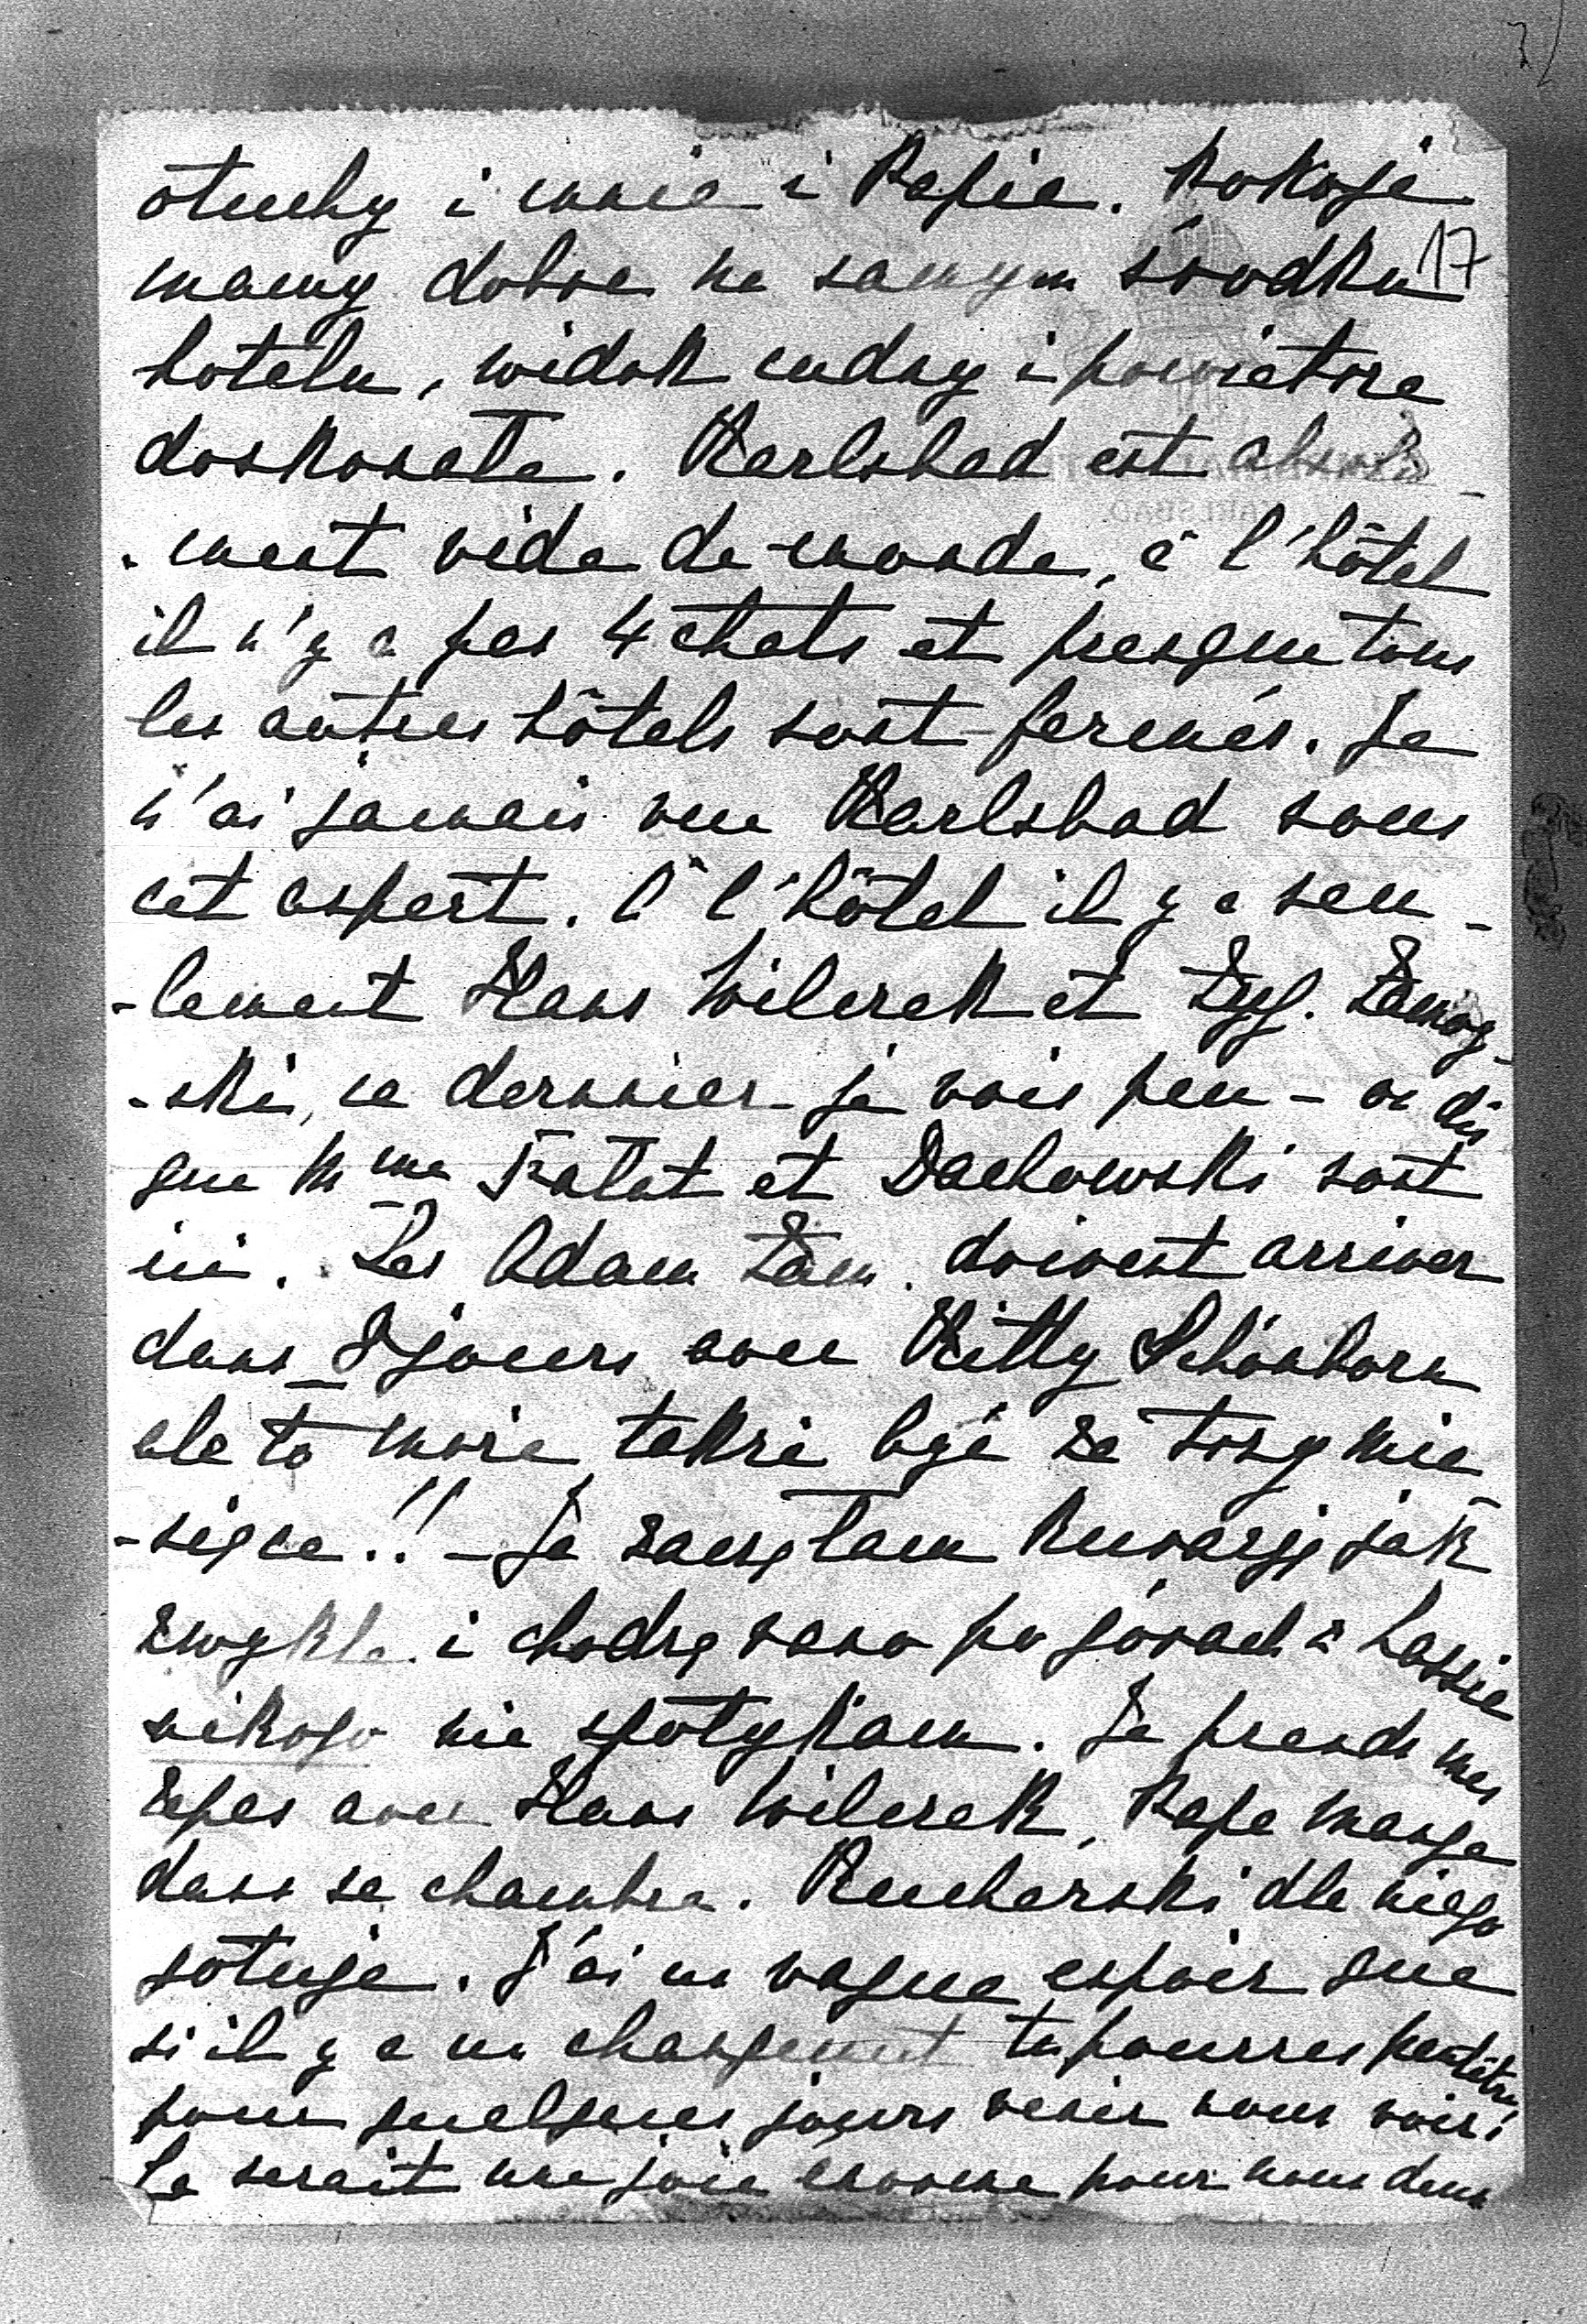 otuchy i mnie i Papie. Pokoje
17
mamy dobre na samym środku
hotelu, widok cudny i powietrze
doskonałe. Karlsbad est absolu-
-ment vide de monde, à l'hôtel
il n'y a pas 4 chats et presque tous
les autres hôtels sont fermés. Je
n'ai jamais vu Karlsbad sous
cet aspect. À l'hôtel il y a seu-
-lement Hans Wilczek et Zyg. Zamoy-
-ski, ce dernier je vois peu - on dit
que Mme Fałat et Dachowski sont
ici. Les Adam Zam. doivent arriver
dans 8 jours avec Kitty Schönborn
ale to może także być za trzy mie-
-siące!! - Ja zaczęłam kurację jak
zwykle i chodzę rano po górach z Lassie
nikogo nie spotykam. Je prends mes
repas avec Hans Wilczek, Papa mange
dans sa chambre. Kucharski dla niego
gotuje. J'ai un vague espoir que
si il y a un changement tu pourras peut être
pour quelques jours venir nous voir!
Ce serait une joie énorme pour nous deux